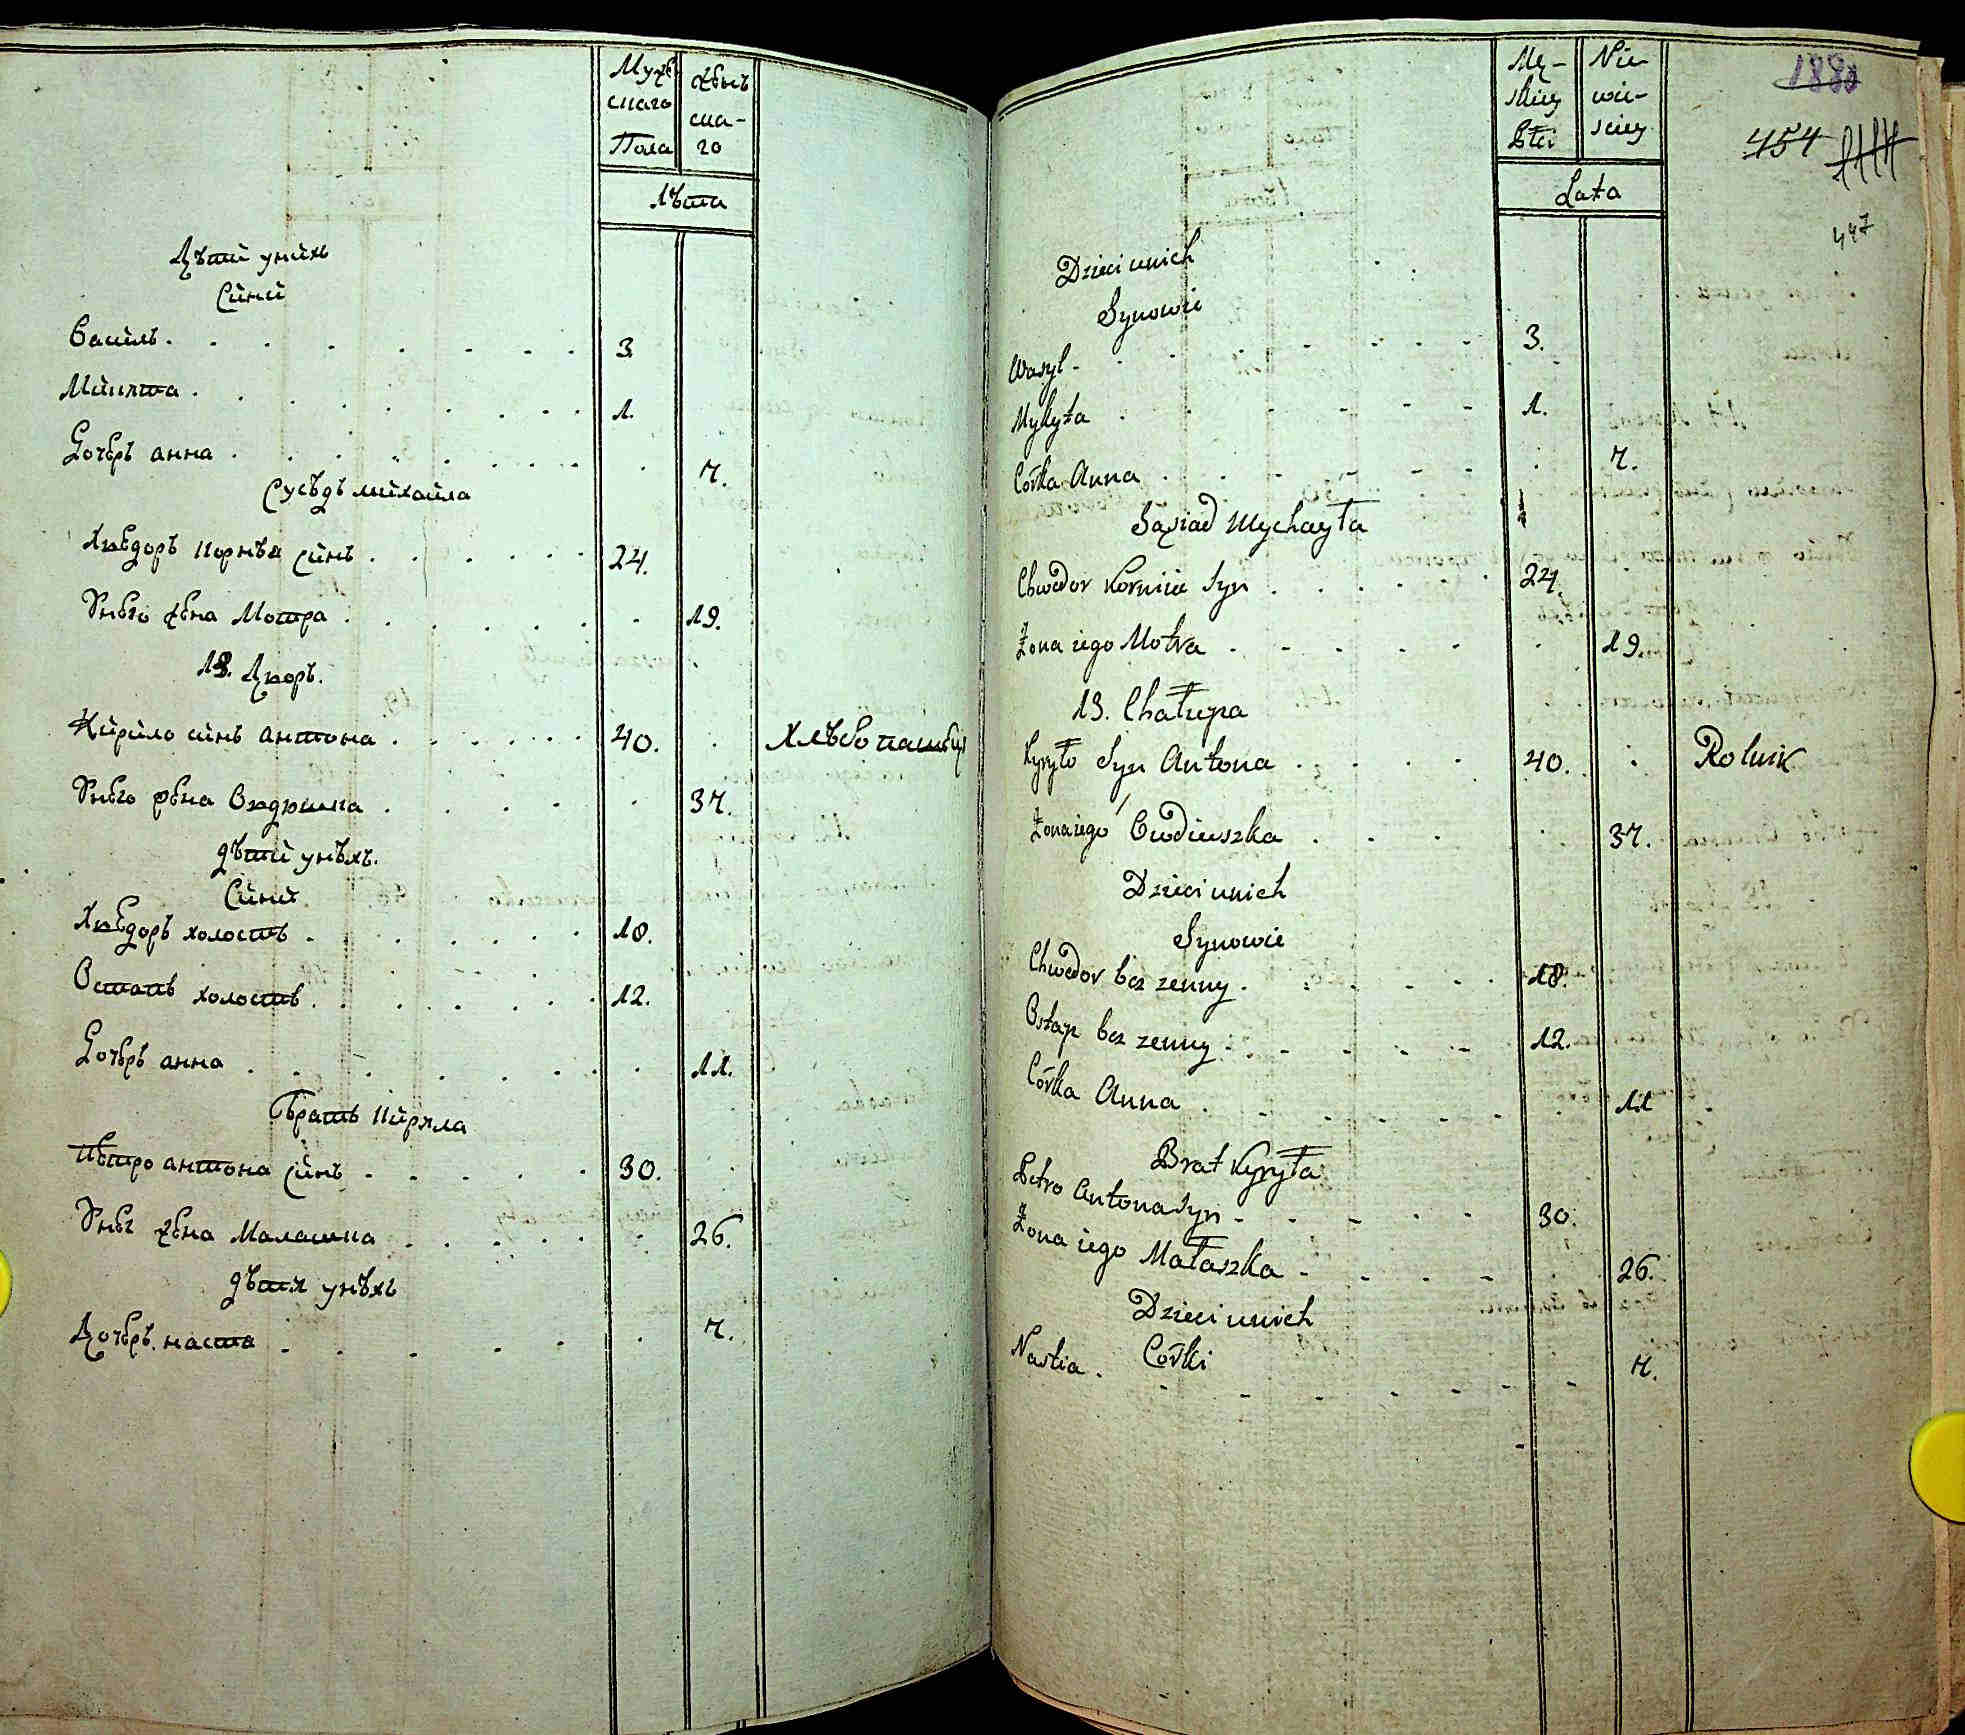 Мужескаго Пола
Женьскаго
лѣта
Дѣтй унйхъ
Сйнй
Васйль 3.
Мйкита 1.
Дочерь анна 7.
Сусѣдъ мйхайла
Хведоръ Корнѣя сйнъ 24.
Унего жена Мотра 19.
13. Дворъ.
Кйрйло сйнъ антона 40. Хлѣбопашецъ
Унего жена Овдюшка 37.
дѣтй унѣхъ.
Сйнй
Хведоръ холостъ 18.
Остапъ холостъ 12.
Дочерь анна 11.
Братъ Кйрила
Петро антона сйнъ 30.
Унег жена Малашка 26.
дѣти унѣхъ
Дочерь наста 7.
Męskiey Płci
Niewieściey
Lata
1880
454
447
Dzieci unich
Synowie
Wasyl 3.
Mykyta 1.
Córka Anna 7.
Sąsiad Mychayła
Chwedor Kornia Syn 24.
Żona iego Motra 19.
13. Chałupa
Kyryło Syn Antona 40. Rolnik
Żona iego Owdiuszka 37.
Dzieci unich
Synowie
Chwedor bez zenny 18.
Ostap bez zenny 12.
Córka Anna 11
Brat Kyryła
Petro Antona Syn 30.
Żona iego Małaszka 26.
Dzieci unich
Córki
Nastia 7.